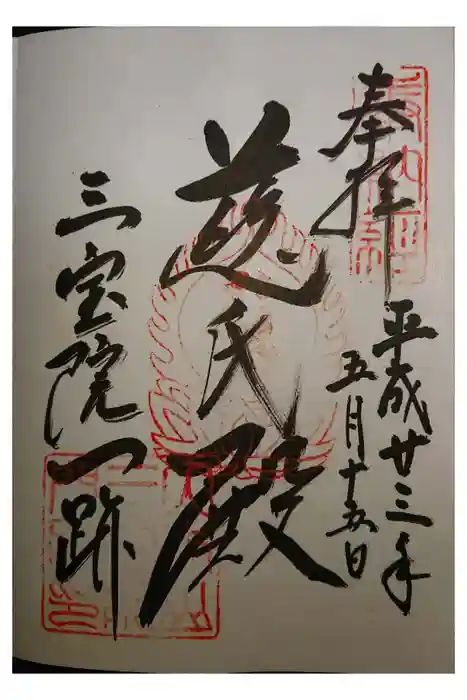 奉拝
平成廿三年
五月十五日
慈氏殿
三宝院一跡